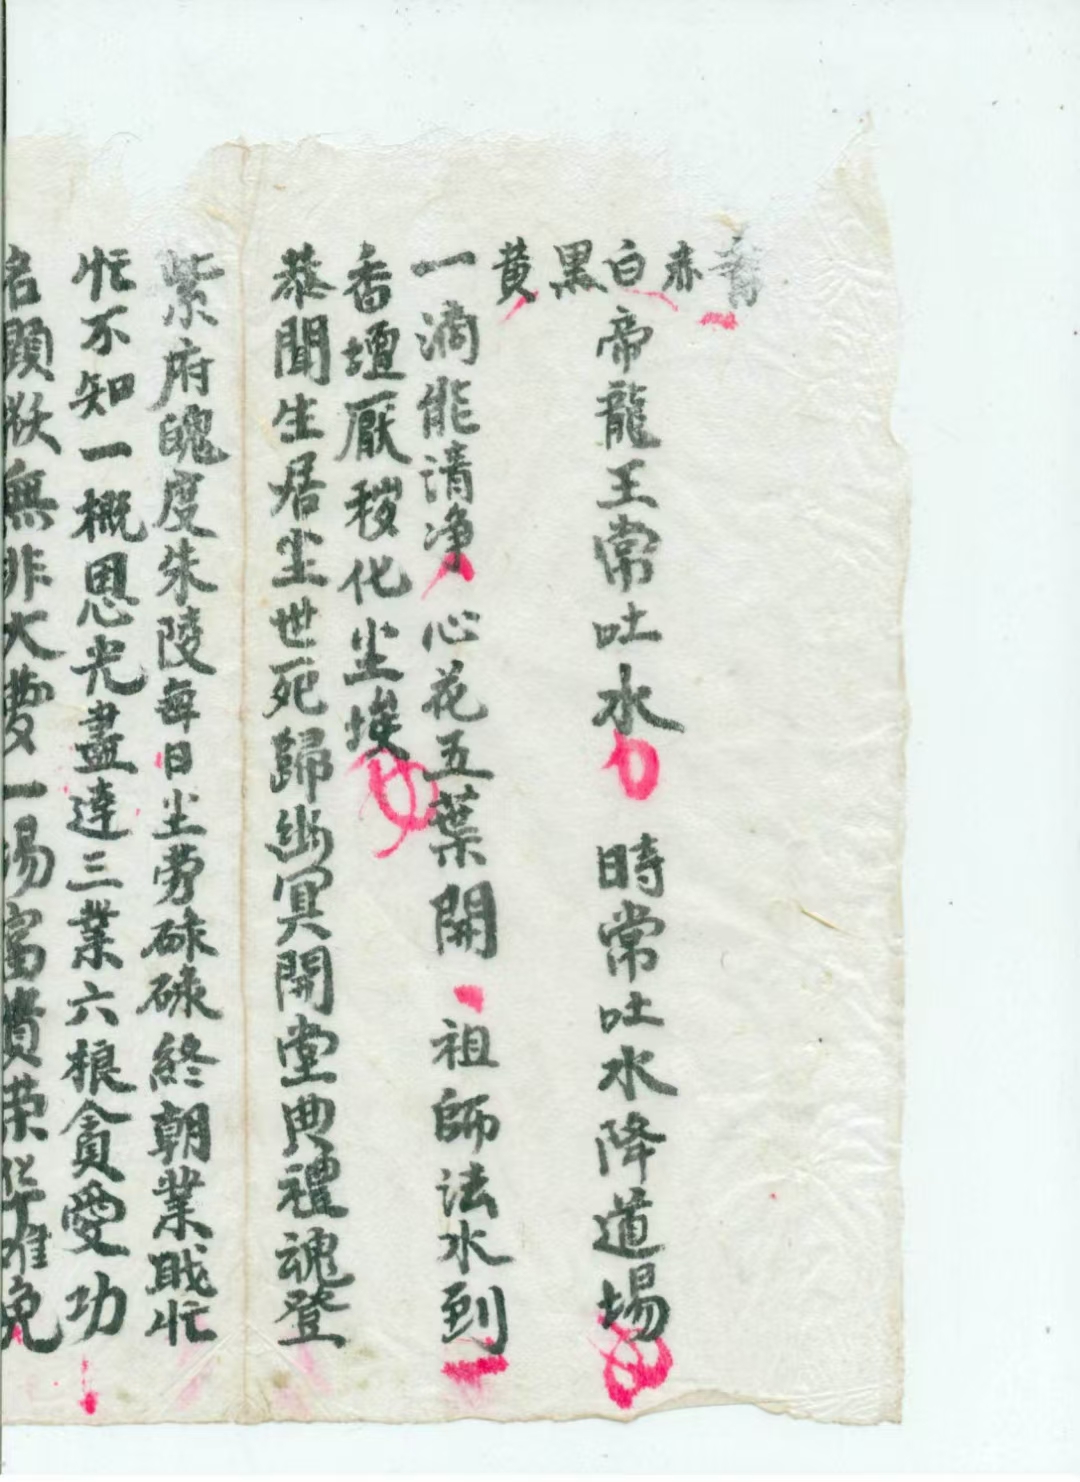 青赤白黑黃
帝龍王常吐水 時常吐水降道場
一滴能清净 心花五葉開 祖師法水到
香壇厭穢化尘埃
恭聞生居尘世死歸幽冥開堂典禮魂登
紫府魄度朱陵每日尘劳碌碌終朝業戝忙
忙不知一概恩光盡達三業六根貪愛功
名顕欲無非大夢一場富貴荣华难免